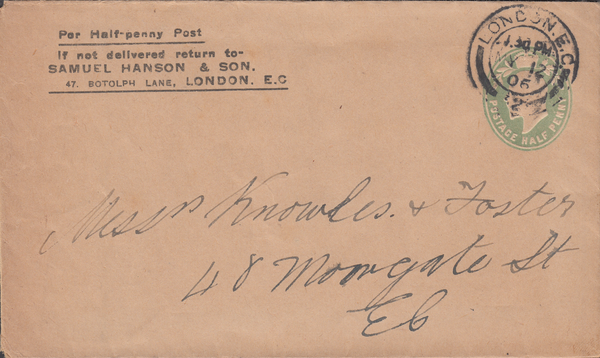 Per Half-penny Post
If not delivered return to-
SAMUEL HANSON & SON.
47. BOTOLPH LANE, LONDON. E.C
LONDON. E.C
1.30 PM
12
06
POSTAGE HALF PENNY
Messrs Knowles & Foster
48 Moorgate St
EC